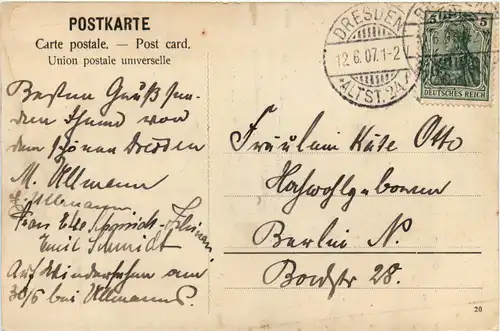 POSTKARTE
Carte postale. — Post card.
Union postale universelle
Besten Gruß sen-
den Ihnen von
dem schönen Dresden
M. Ullmann
Ullmann
Frau Schmidt-
Emil Schmidt
Auf Wiedersehen am
30/6 bei Ullmanns.
DRESDEN
12.6.07.1-2
ALTST. 24
5 5
DEUTSCHES REICH
Fräulein Käte Otto
Hochwohlgeboren
Berlin N.
Bordstr 28.
20